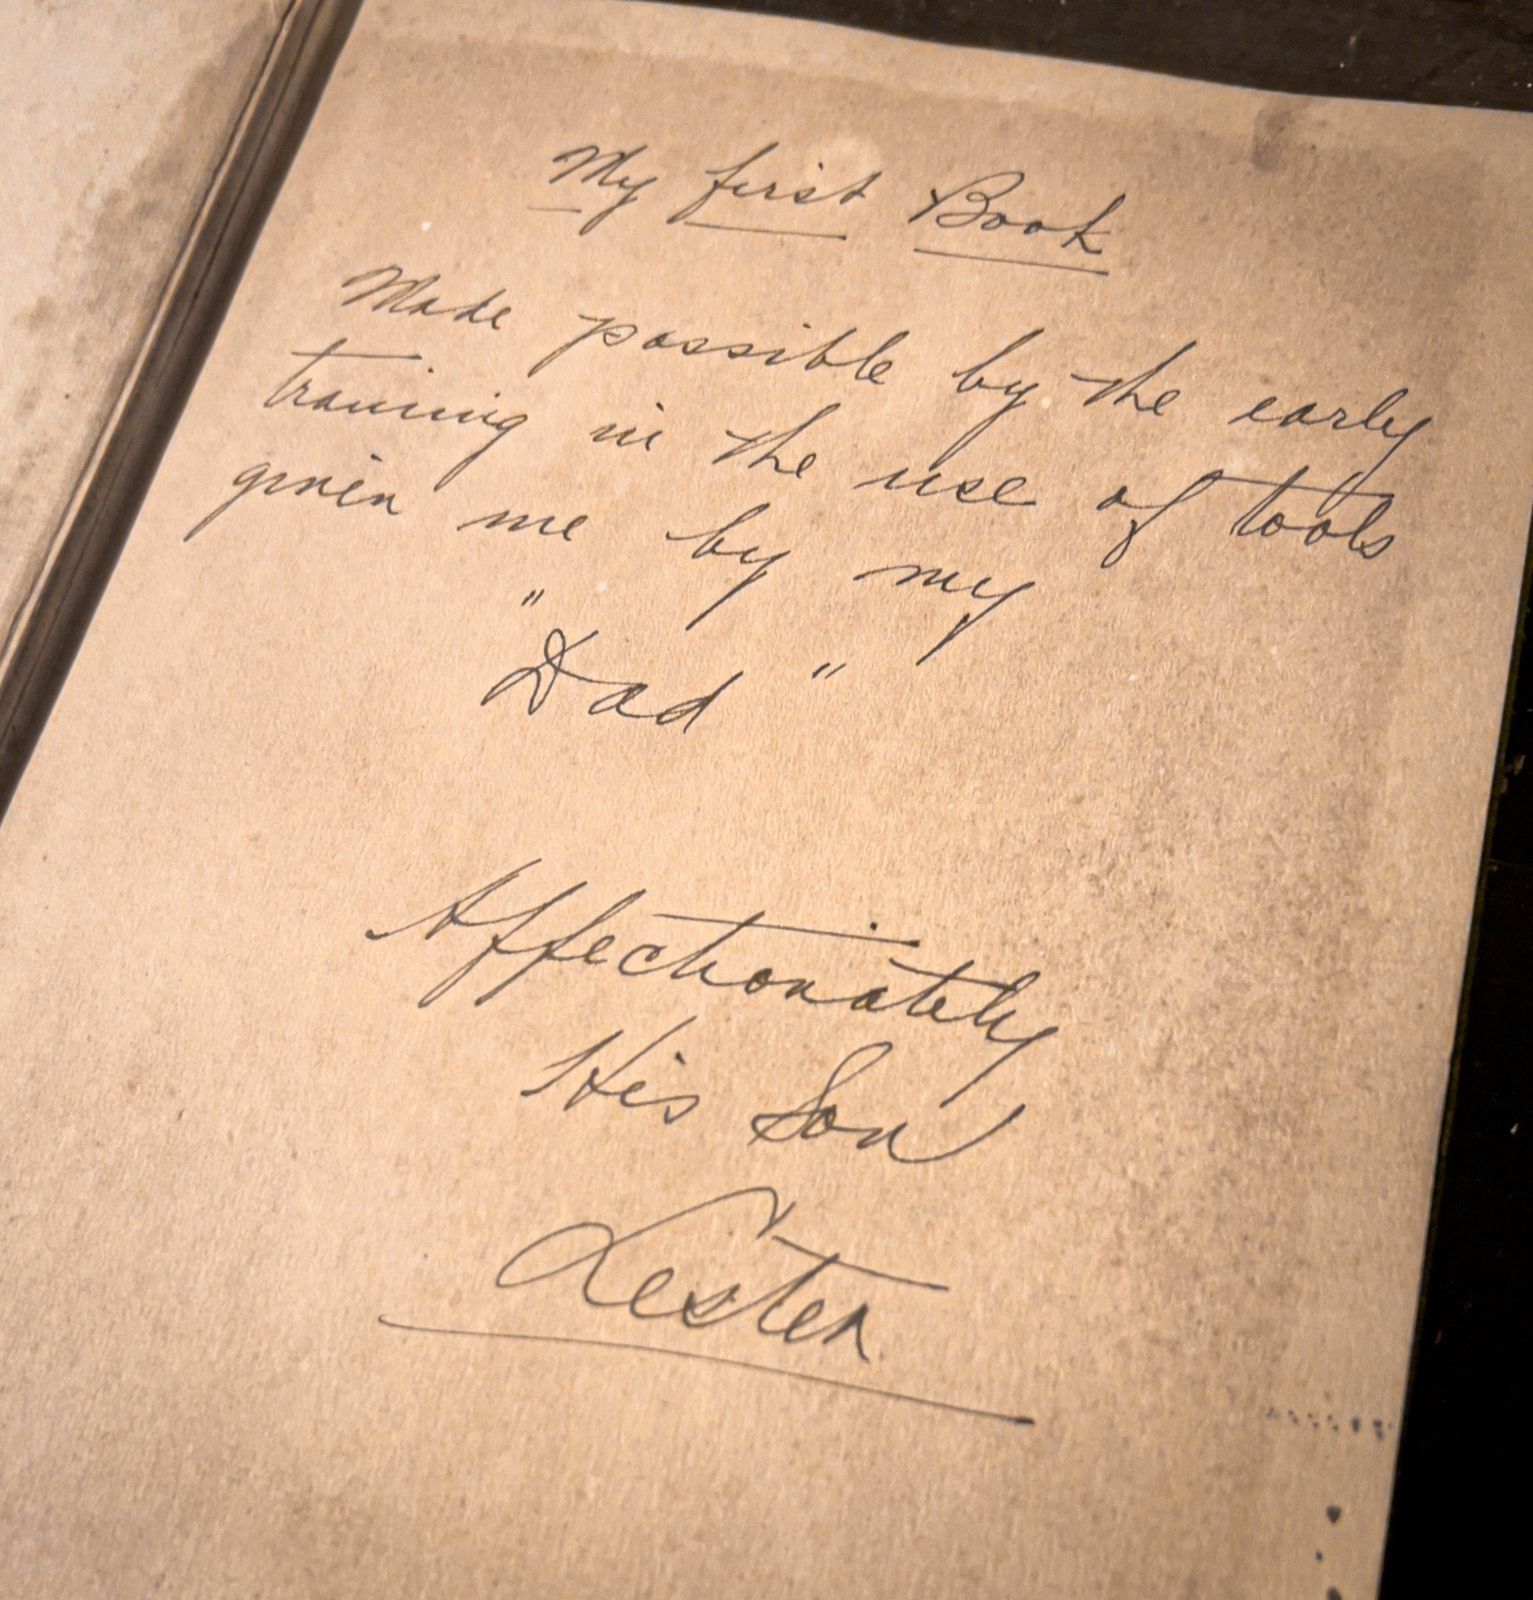 My first Book
Made possible by the early
training in the use of tools
given me by my
"Dad"
Affectionately
His Son
Lester